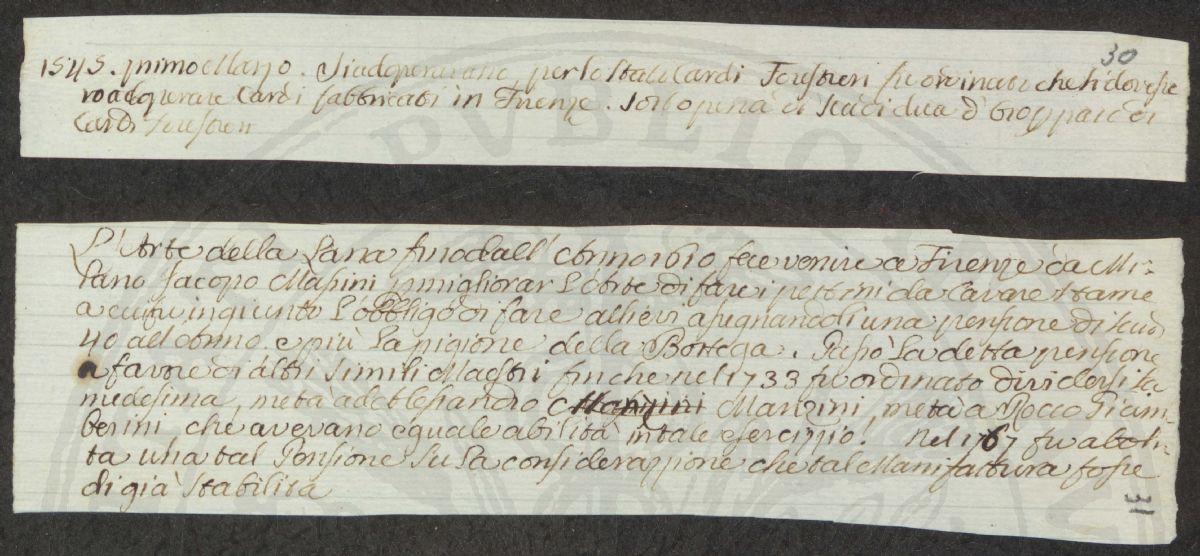 30
1545. primo Marzo. Si adoperavano per lo Stato Cardi Forestieri fu ordinato che si dovesse
ro adoperare Cardi fabbricati in Firenze. sotto pena di scudi dua d'
Cardi Forestieri
L'Arte della Lana fino dall'Anno 1610 fece venire a Firenze da Mi:
lano Jacopo Masini p migliorar L'Arte di fare i pettini da Cavare stame
a cui fu ingiunto L'obbligo di fare allievi assegnandoli una pensione di scudi
40 all'Anno e più La pigione della Bottega. Passò La detta pensione
a favore di altri simili Maestri finche nel 1733 fu ordinato dividersi la
medesima, metà ad Alessandro Manzini, metà a Rocco Giam:
berini che avevano eguale abilità in tale esercizzio! Nel 1767 fu aboli:
ta una tal Pensione su La considerazzione che tal Manifattura fosse
di già stabilita
31